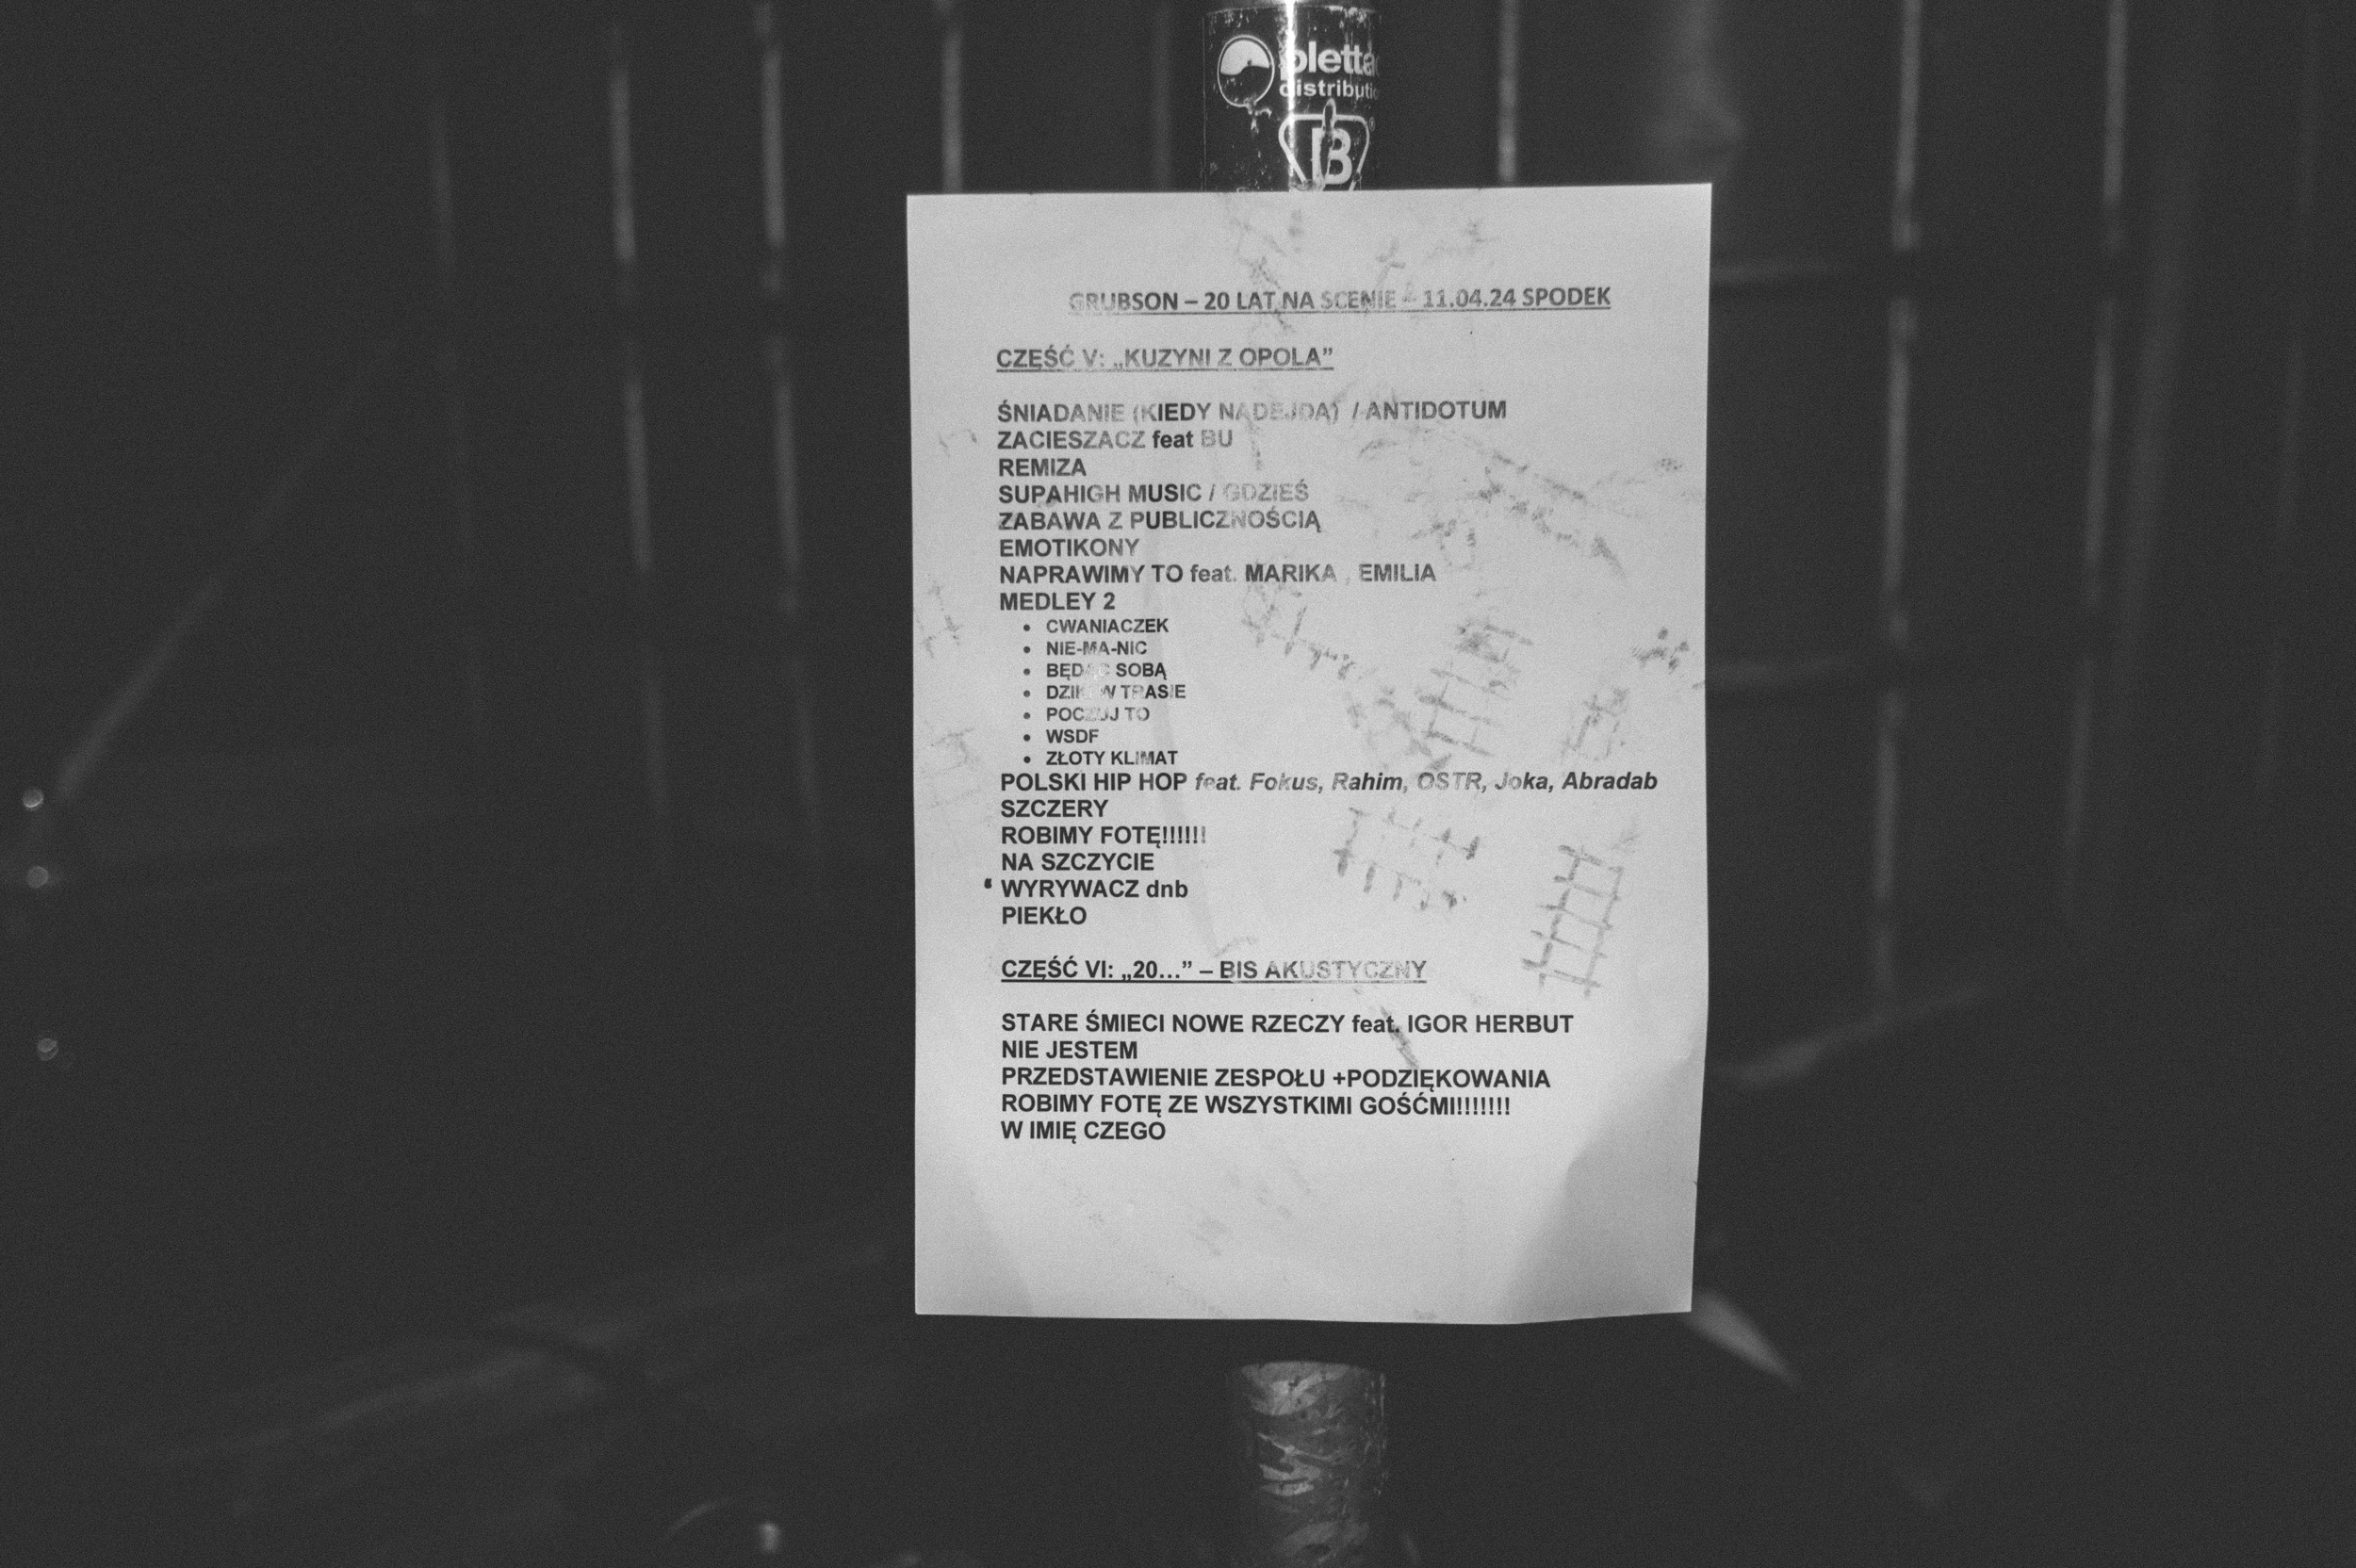 pletta
distributi
B
GRUBSON – 20 LAT NA SCENIE – 11.04.24 SPODEK
CZĘŚĆ V: „KUZYNI Z OPOLA”
ŚNIADANIE (KIEDY NADEJDA) / ANTIDOTUM
ZACIESZACZ feat BU
REMIZA
SUPAHIGH MUSIC / GDZIEŚ
ZABAWA Z PUBLICZNOŚCIĄ
EMOTIKONY
NAPRAWIMY TO feat. MARIKA , EMILIA
MEDLEY 2
• CWANIACZEK
• NIE-MA-NIC
• BĘDĄC SOBĄ
• DZIKI W TRASIE
• POCZUJ TO
• WSDF
• ZŁOTY KLIMAT
POLSKI HIP HOP feat. Fokus, Rahim, OSTR, Joka, Abradab
SZCZERY
ROBIMY FOTĘ!!!!!!
NA SZCZYCIE
WYRYWACZ dnb
PIEKŁO
CZĘŚĆ VI: „20...” – BIS AKUSTYCZNY
STARE ŚMIECI NOWE RZECZY feat. IGOR HERBUT
NIE JESTEM
PRZEDSTAWIENIE ZESPOŁU +PODZIĘKOWANIA
ROBIMY FOTĘ ZE WSZYSTKIMI GOŚĆMI!!!!!!!
W IMIĘ CZEGO